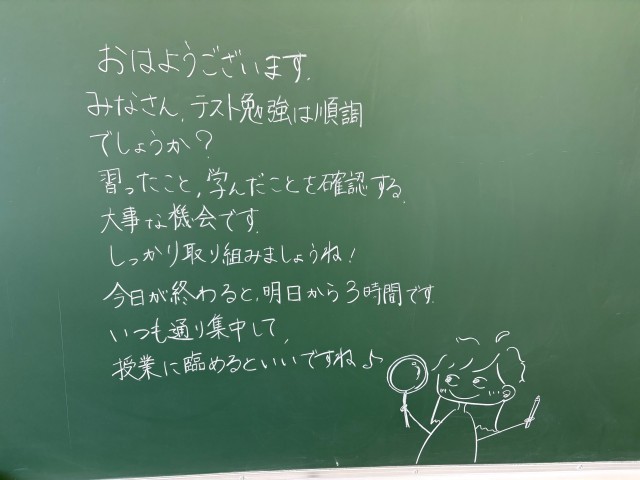 おはようございます.
みなさん,テスト勉強は順調
でしょうか?
習ったこと,学んだことを確認する.
大事な機会です.
しっかり取り組みましょうね!
今日が終わると,明日から3時間です.
いつも通り集中して,
授業に臨めるといいですね♪